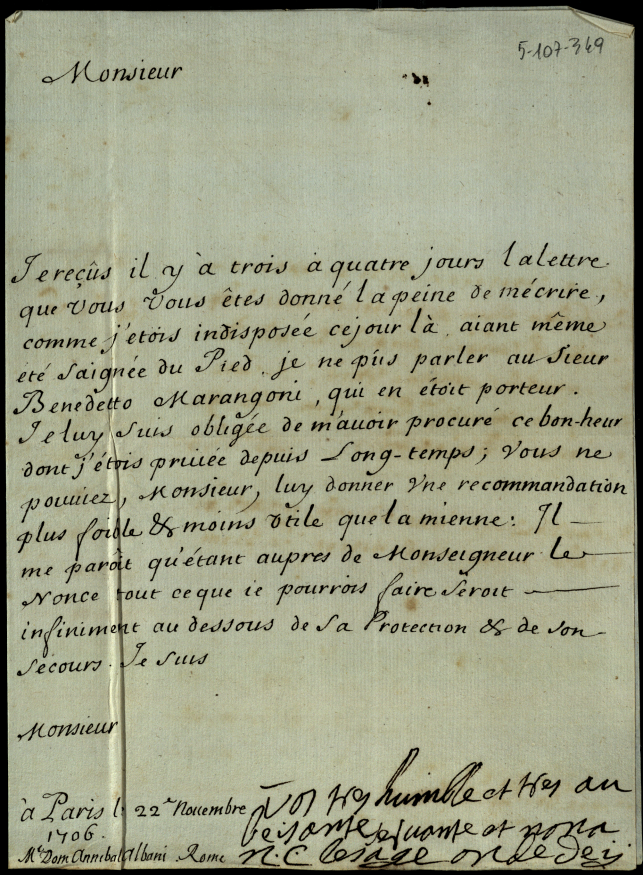 5-107-349
Monsieur
Je reçûs il y à trois à quatre jours la lettre
que vous vous êtes donné la peine de mécrire,
comme j'etois indisposée ce jour là, aiant même
été saignée du Pied, je ne pûs parler au Sieur
Benedetto Marangoni, qui en étoit porteur.
Je luy suis obligée de m'auoir procuré ce bon-heur
dont j'étois priuée depuis Long-temps; vous ne
pouuiez, Monsieur, luy donner vne recommandation
plus foible & moins vtile que la mienne: Il
me paroît qu'étant aupres de Monseigneur le
Nonce tout ce que ie pourrois faire seroit
infiniment au dessous de sa Protection & de son
secours. Je suis
Monsieur
à Paris le 22e Nouembre
1706.
Mr Dom Annibal Albani. Rome
Vos tres humble et tres au
beisante seruante et